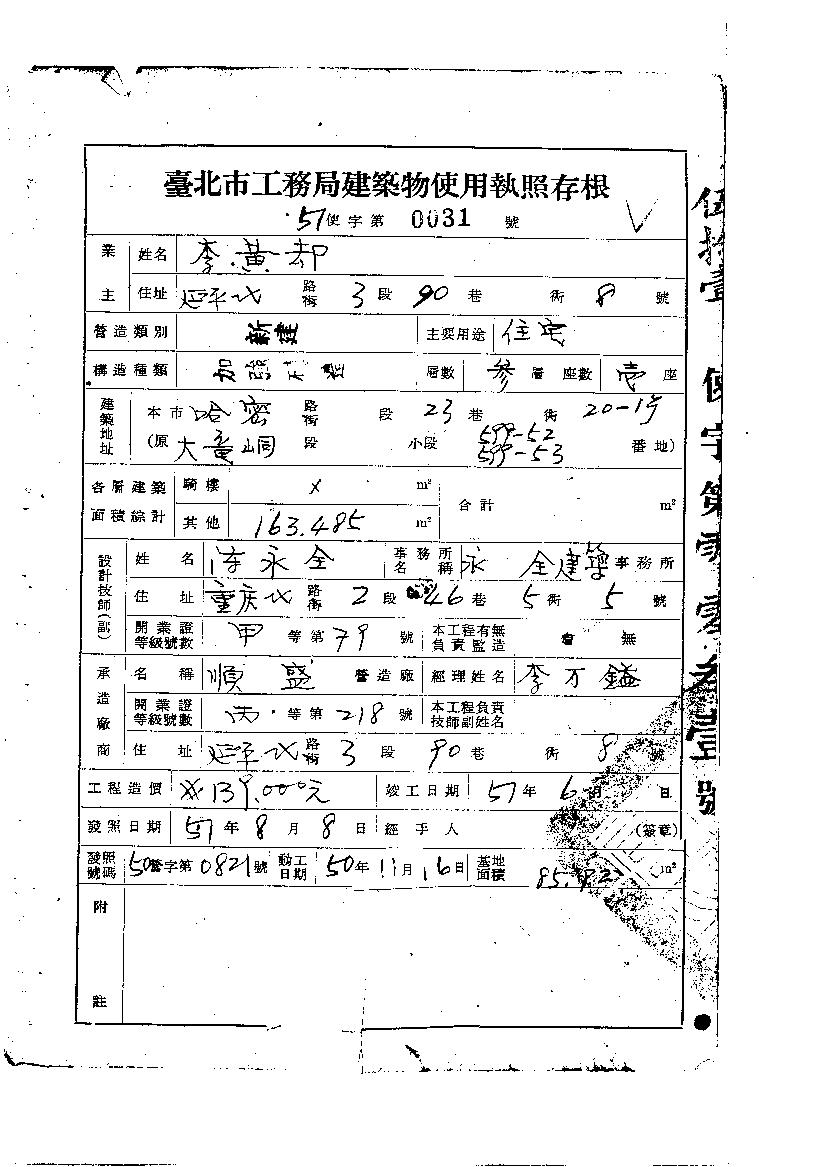 臺北市工務局建築物使用執照存根
51使字第 0031 號
業主 姓名 李黃却
住址 延平北路街 3段 90巷 街 8號
營造類別 新建 主要用途 住宅
構造種類 加強 層數 參層 座數 壹座
建築地址 本市 哈密路街 段 23巷 街 20-1号
(原 大竜峒段 小段 599-52 599-53 番地)
各層建築面積綜計 騎樓 × m² 合計 m²
其他 163.485 m²
設計技師(副) 姓名 永全 事務所名稱 永全建築事務所
住址 重庆北路街 2段 46巷 5街 5號
開業證等級號數 甲等第79號 本工程有無負責監造 有 無
承造廠商 名稱 順盛營造廠 經理姓名 李万鎰
開業證等級號數 丙等第218號 本工程負責技師副姓名
住址 延平北路街 3段 90巷 街 8號
工程造價 139,000元 竣工日期 51年6月 日
發照日期 51年8月8日 經手人 (簽章)
發照號碼 50營字第0821號 動工日期 50年11月16日 基地面積 m²
附註
伍拾壹 使字第零零叁壹號